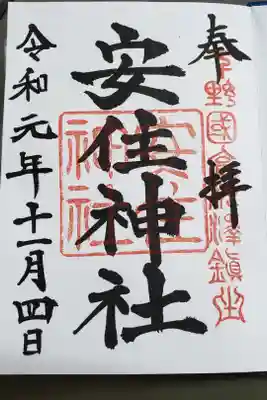 奉拝
野國
澤鎮
安住神社
安住
神社
令和元年十一月四日